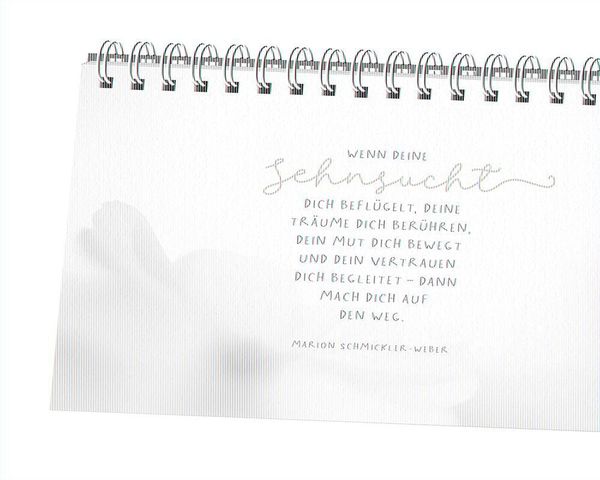 WENN DEINE
Sehnsucht
DICH BEFLÜGELT, DEINE
TRÄUME DICH BERÜHREN,
DEIN MUT DICH BEWEGT
UND DEIN VERTRAUEN
DICH BEGLEITET – DANN
MACH DICH AUF
DEN WEG.
MARION SCHMICKLER-WEBER